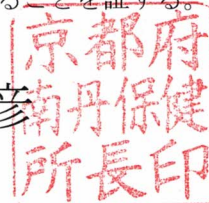 ることを証する。
彦
京都府
南丹保健
所長印